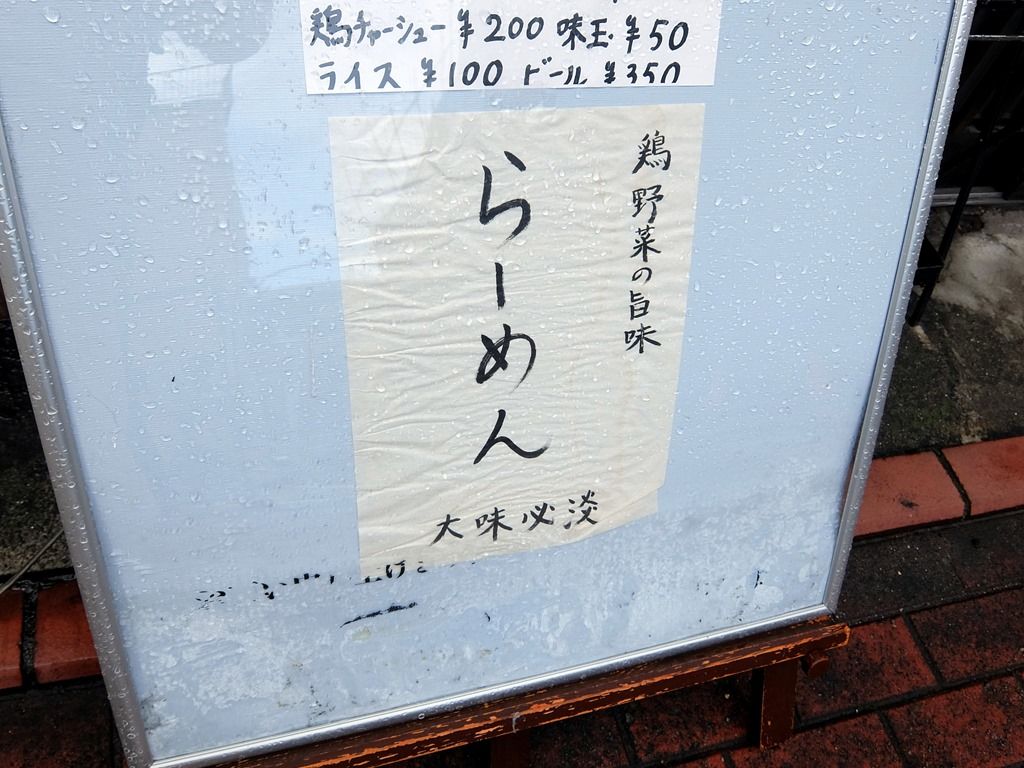 鶏チャーシュー ¥200 味玉 ¥50
ライス ¥100 ビール ¥350
鶏野菜の旨味
らーめん
大味必淡